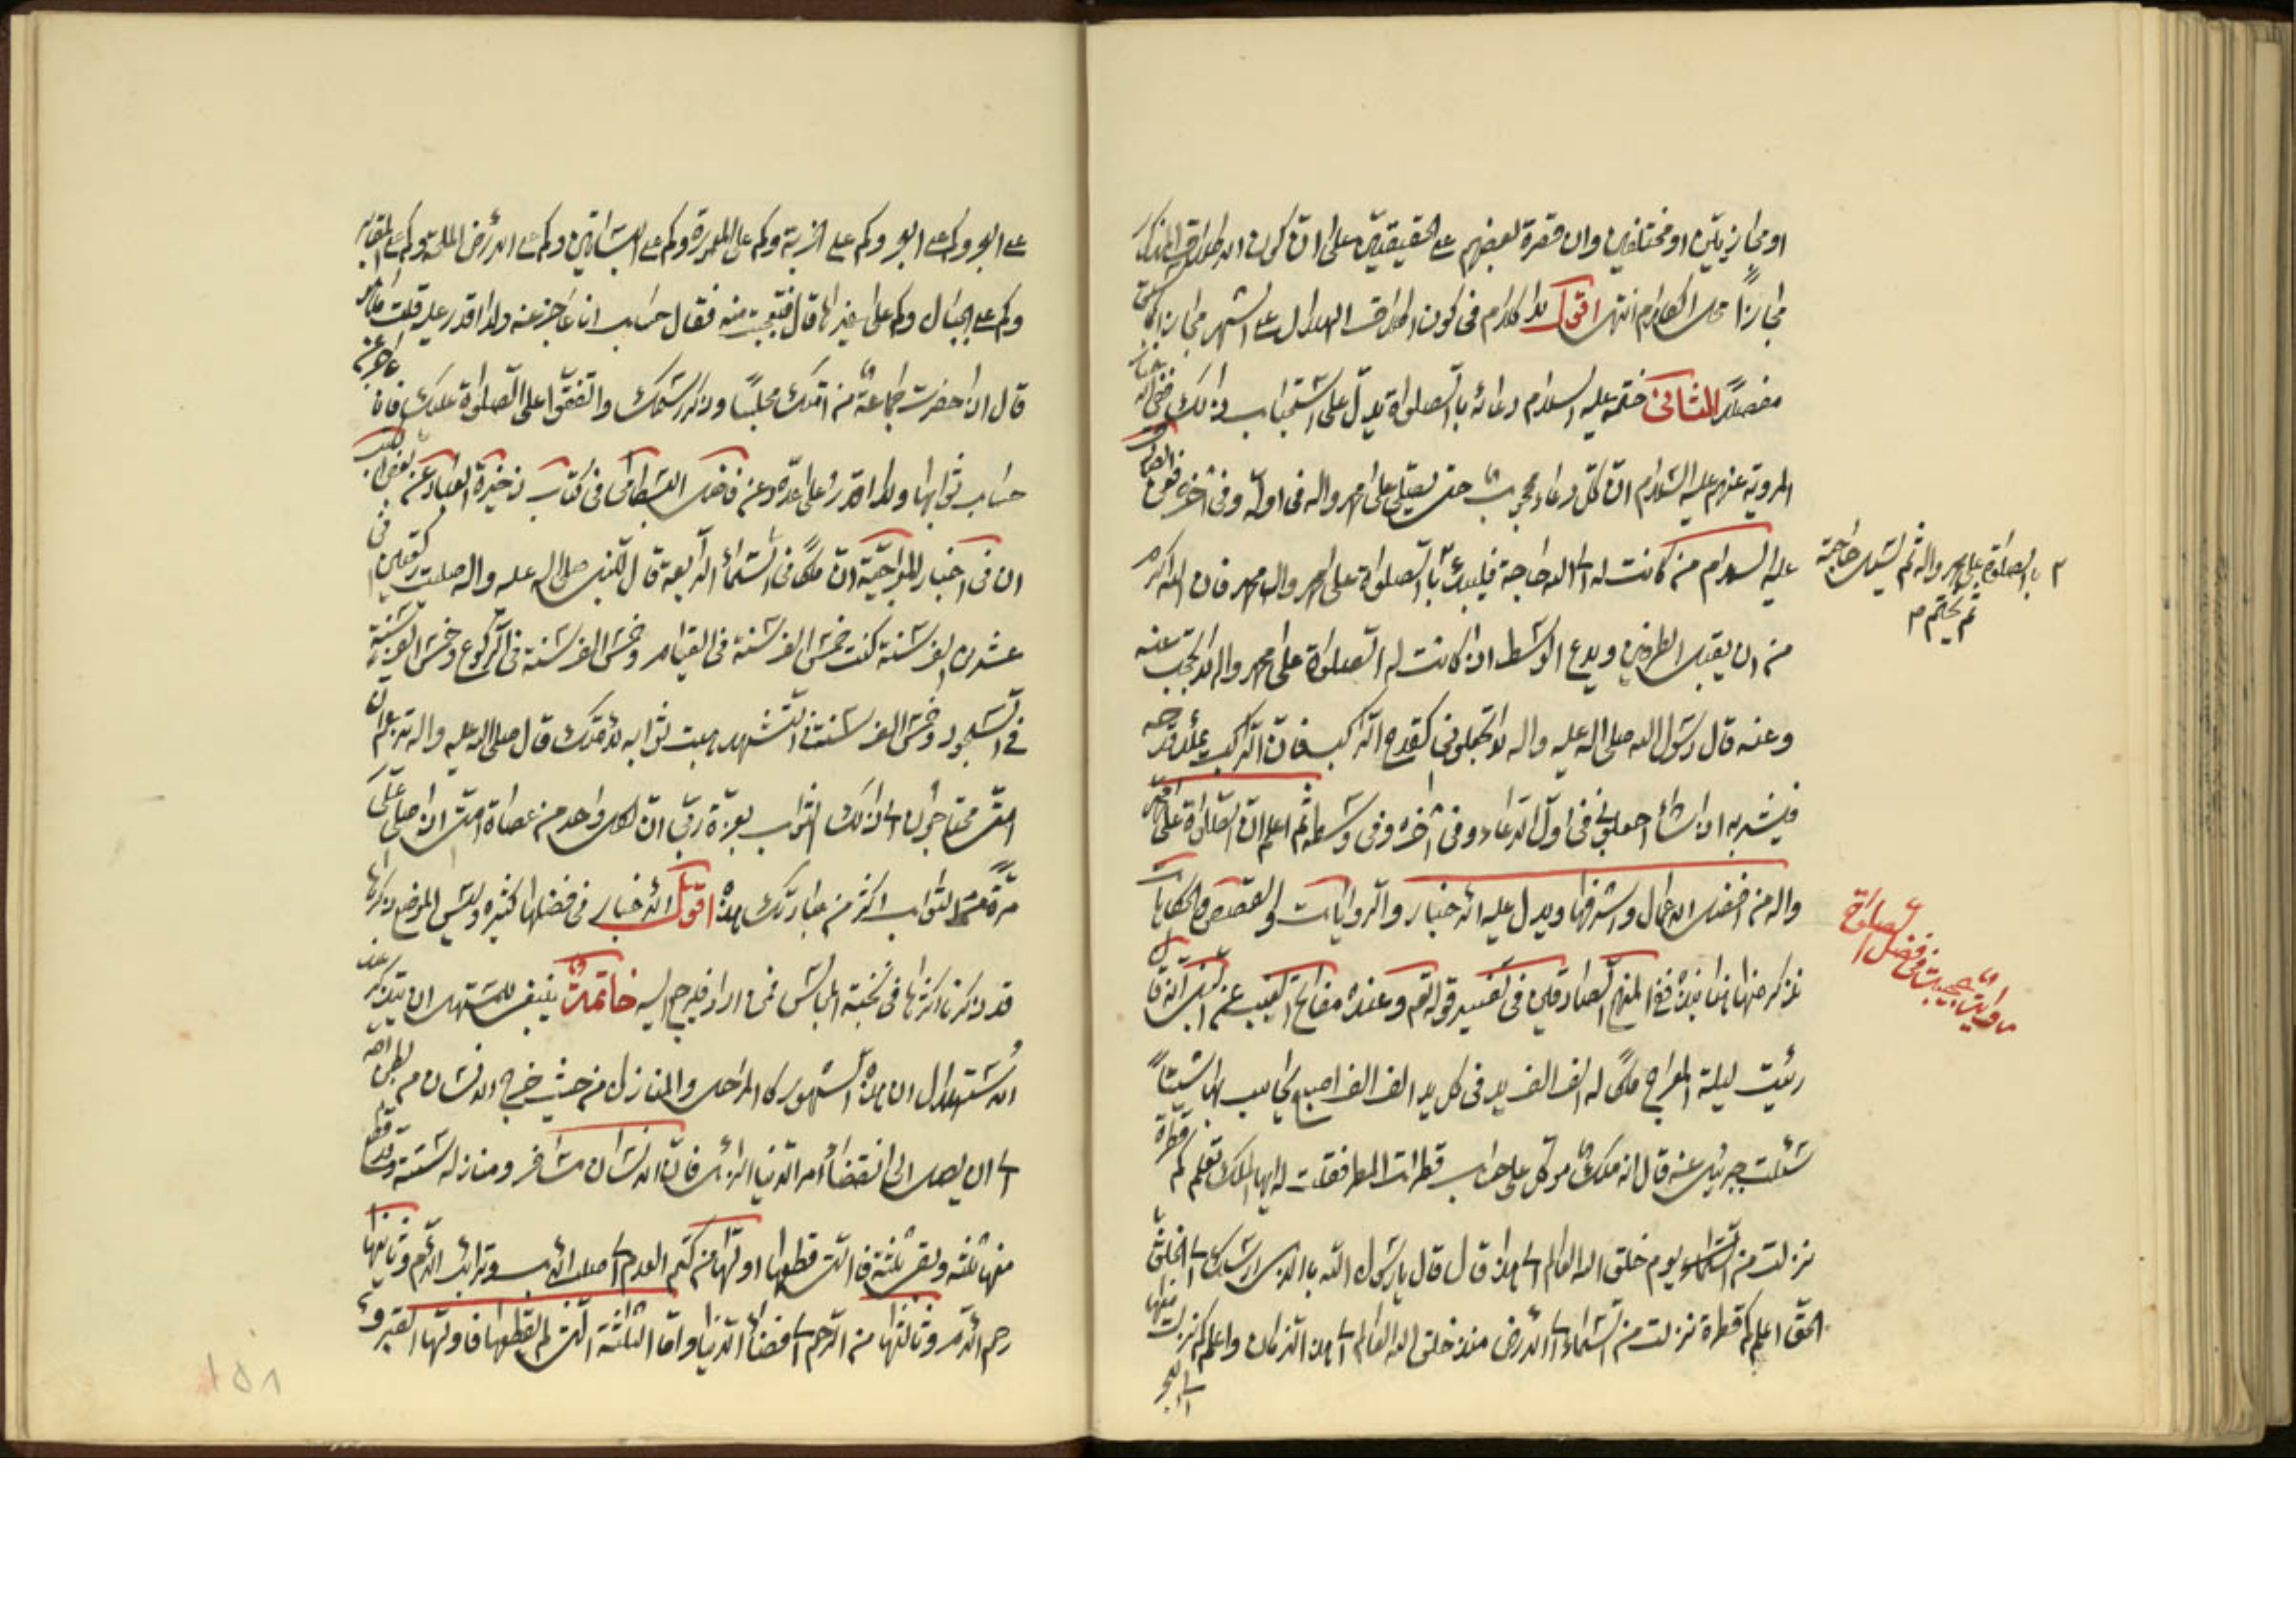 او مجازيتين او مختلفين وان قصرة بعضهم على الحقيقيتين على ان كون الاطلاق المذكور
مجازاً محل الكلام انتهى اقول لا كلام في كون اطلاق الهلال على الشهر مجازا كما سبق
مفصلاً الثاني ختمه عليه السلام دعائه بالصلواة يدل على استحباب ذلك
المروية عنهم عليه السلام ان كل دعاء محجوب حتى يصلي على محمد واله في اوله وفي اخره فعن الصادق
عليه السلام من كانت له الى الله حاجة فليبدء بالصلواة على محمد وال محمد فان الله اكرم
من ان يقبل الطرفين ويدع الوسط اذ كانت له الصلواة على محمد واله لا تحجب عنه
وعنه قال رسول الله صلى اله عليه واله لا تجعلوني كقدح الراكب فان الراكب يملأ قدحه
فيشربه اذا شاء اجعلوني في اول الدعاء وفي اخره وفي وسطه ثم اعلم ان الصلواة على محمد
واله من افضل الاعمال واشرفها ويدل عليه الاخبار والروايات والقصص والحكايات
نذكر منها هنا نبذة ففي المنهج الصادقين في تفسير قوله تعم وعنده مفاتح الغيب عن النبي انه قال
رئيت ليلة المعراج ملكاً له الف الف يد في كل يد الف الف اصبع يحاسب بها شيئاً
سئلت جبرئيل عنه قال انه ملك موكل على حساب قطرات المطر فقلت له ايها الملك تعلم كم قطرة
نزلت من السماء يوم خلق الله العالم الى هذا قال قال يا رسول الله بالذي ارسلك الى الخلق
الحق اعلم كم قطرة نزلت من السماء الى الارض منذ خلق الله العالم الى هذا الزمان واعلم كم نزلت منها
الى البحر
بالصلوة على محمد واله ثم ليسئل حاجته
ثم يختم م
روايت عجيبت في فضل الصلوة
على البر وكم على البحر وكم على الخربة وكم على المعمورة وكم على البساتين وكم على الارض المملحة وكم على المقابر
وكم على الجبال وكم على غيرها قال فتعجبت منه فقال حساب انا عاجز عنه ولا اقدر عليه قلت
قال اذا حضرت جماعة من امتك مجلساً وذكر اسمك واتفقوا على الصلواة عليك فانا عاجز عن
حساب ثوابها ولا اقدر على عده وعن فاضل البسطامى فى كتاب ذخيرة العباد عن بعض الكتب
ان في اخبار المعراجية ان ملكاً في السماء الرابعة قال للنبي صلى اله عليه واله صليت ركعتين في
عشرين الف سنة كنت خمس الف سنة في القيام وخمس الف سنة في الركوع وخمس الف سنة
في السجود وخمس الف سنة في التشهد وهبت ثوابه لامتك قال صلى اله عليه واله
امتي محتاجون الى ذلك الثواب بعزة ربي ان لكل واحد من عصاة امتي اذا صلى علي
مرة من الثواب اكثر من عبادتك هذه اقول الاخبار في فضلها كثيرة وليس الموضع ذكرها
قد ذكرنا اكثرها في نخبة المجالس فمن اراد فليرجع اليه خاتمة ينبغي للمستهل ان يتذكر عند
الاستهلال ان هذه الشهور كالمراحل والمنازل من حيث خرج الانسان من بطن امه
الى ان يصل الى انقضاء امر الدنيا الدنية فان الانسان مسافر ومنازله ستة وقد قطع
منها ثلثة وبقي ثلثة فالتي قطعها اولها من كتم العدم الى صلب الاب وترائب الام وثانيها
رحم الام وثالثها من الرحم الى فضاء الدنيا واما الثلثة التي لم يقطعها فاولها القبر و
١٥٨